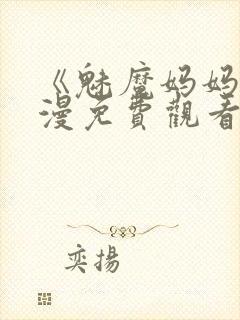 《魅魔妈妈
漫免費觀看
奕揚